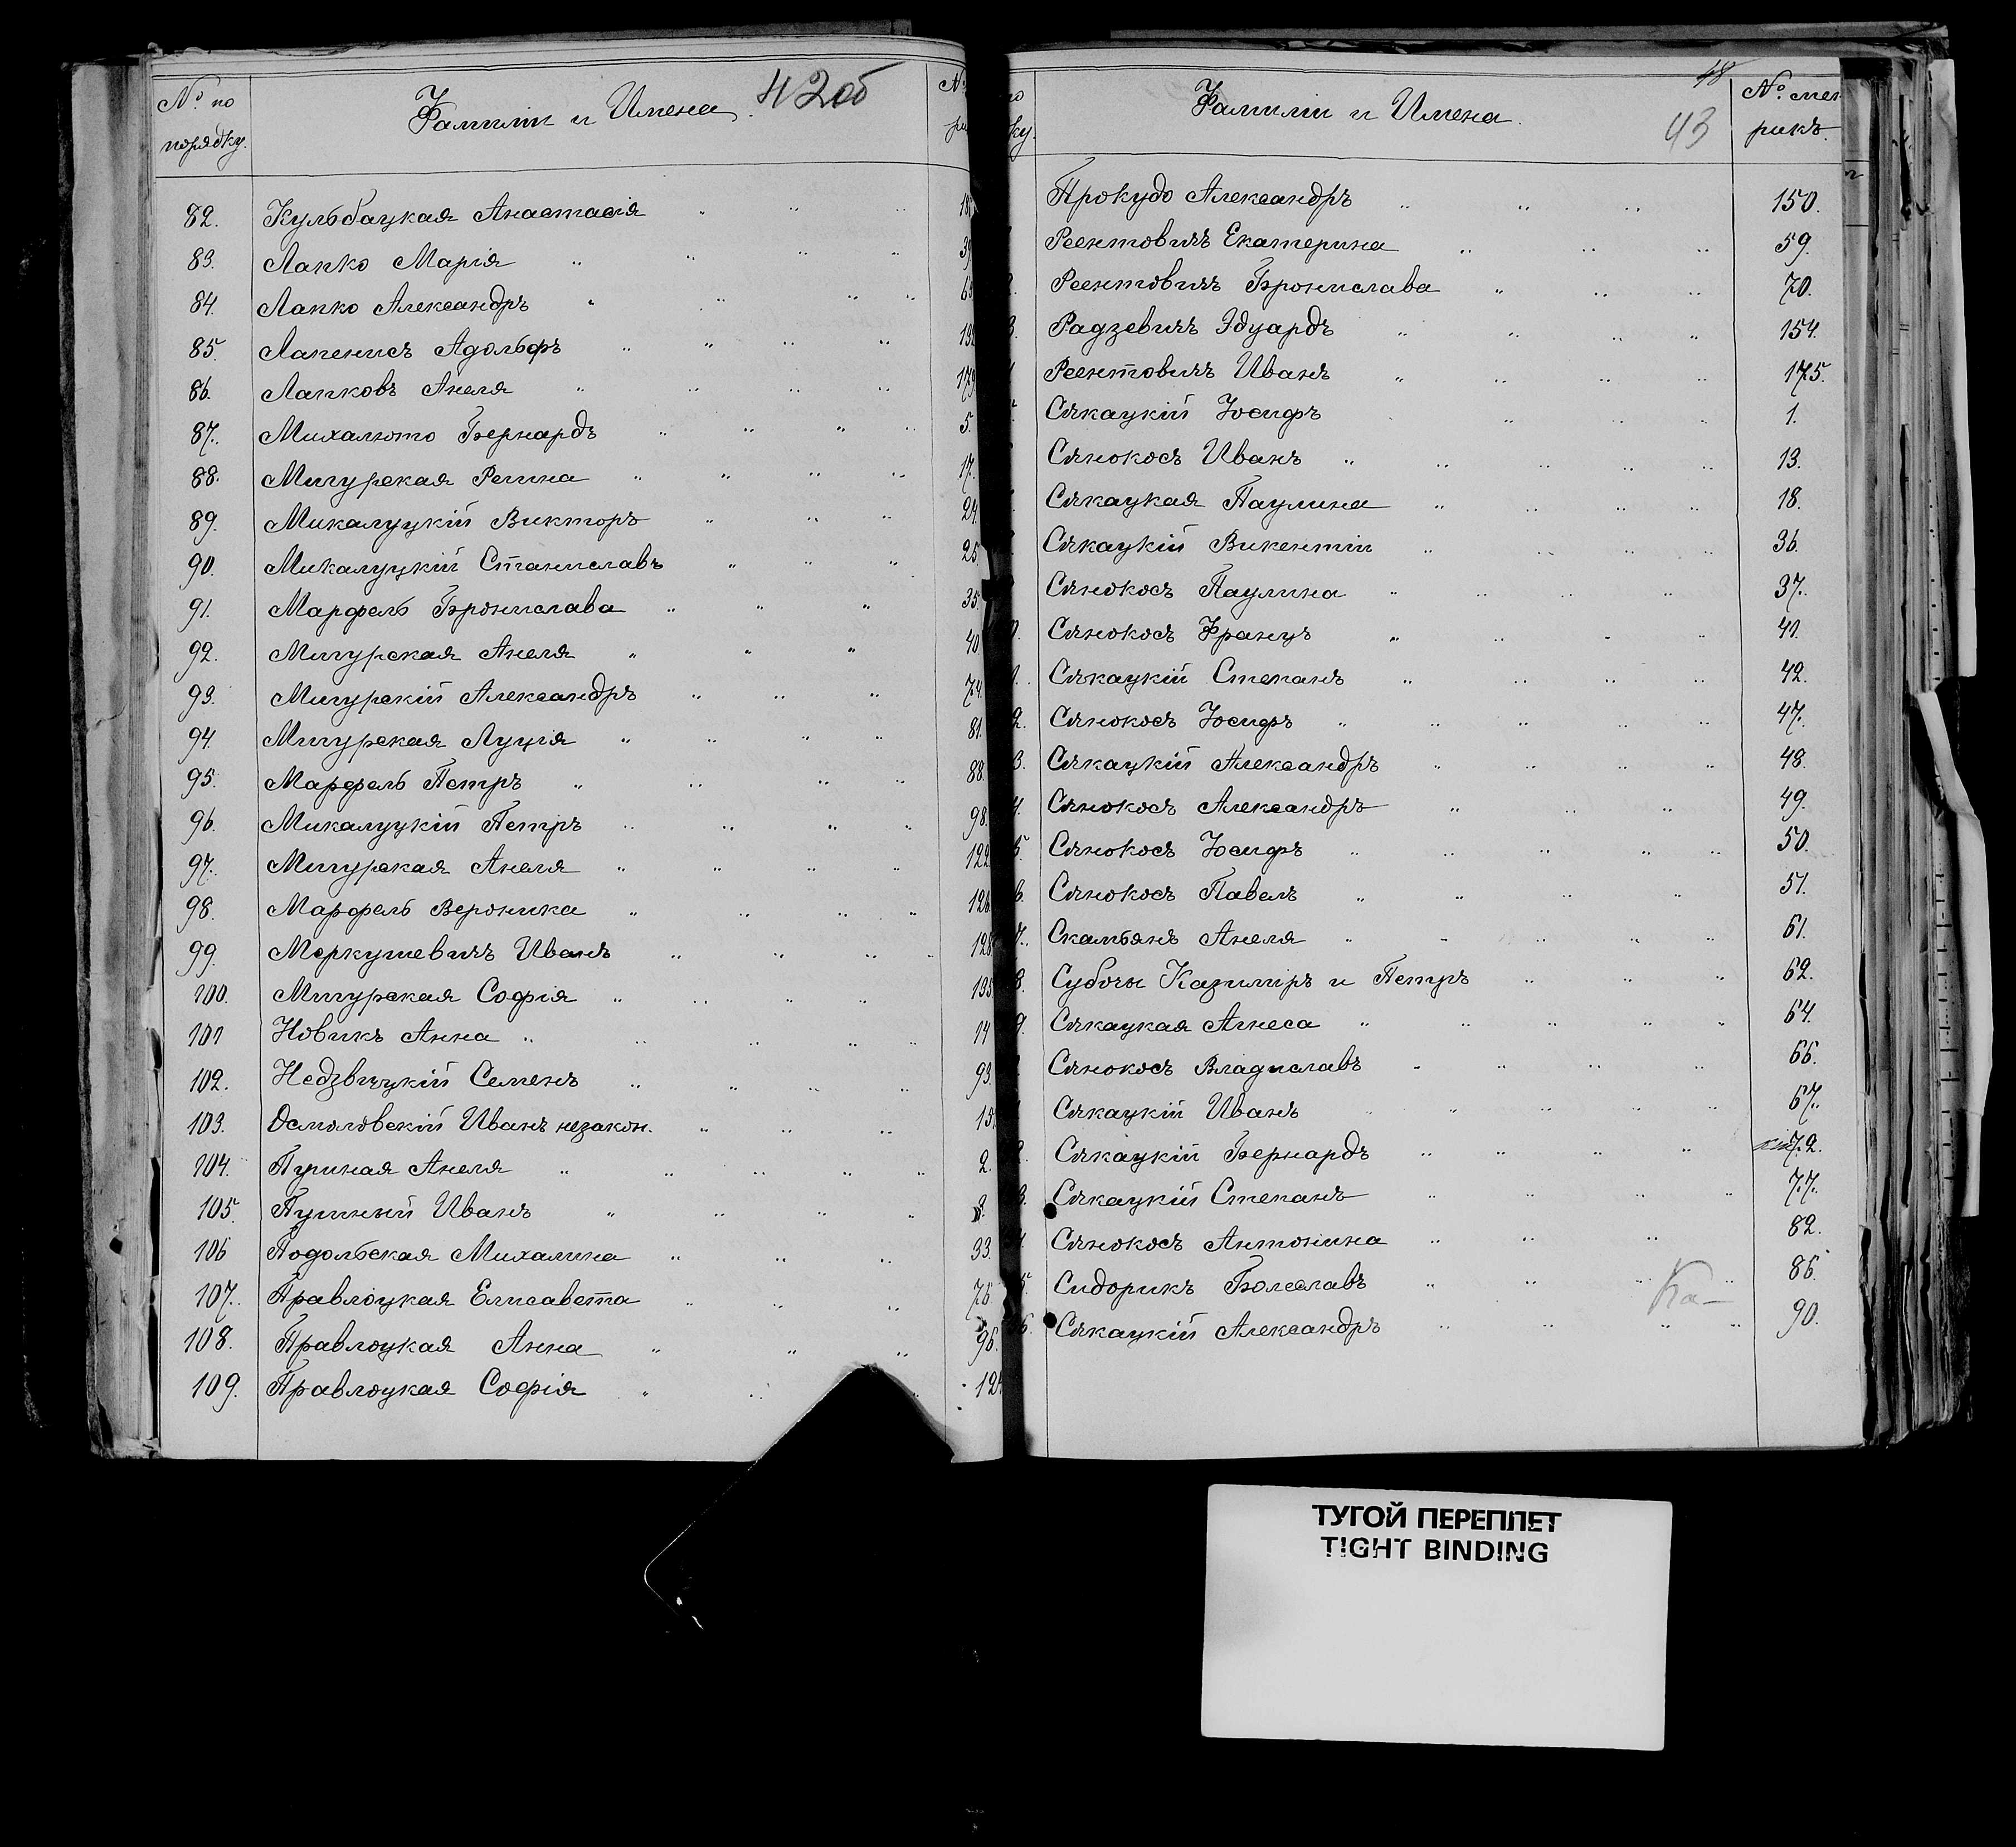 № по порядку.
Фамиліи и Имена.
42об
82. Кульбацкая Анастасія
83. Лапко Марія
84. Лапко Александръ
85. Лапенисъ Адольфъ
86. Лапковъ Анеля
87. Михалюто Бернардъ 5.
88. Мигурская Регина 17.
89. Микалуцкій Викторъ 24
90. Микалуцкій Станиславъ 25.
91. Марфель Брониславa 35.
92. Мигурская Анеля 40
93. Мигурскій Александръ 74.
94. Мигурская Луція 81.
95. Марфель Петръ 88.
96. Микалуцкій Петръ 98.
97. Мигурская Анеля 122
98. Марфель Вероника 126
99. Меркушевичъ Иванъ 128
100. Мигурская Софія
101 Новикъ Анна 14
102. Недзвицкій Семенъ 93.
103. Осмоловскій Иванъ незакон.
104. Пушная Анеля 2.
105. Пушный Иванъ
106 Подольская Михалина 33.
107. Правлоцкая Елисавета 76
108. Правлоцкая Анна 96.
109. Правлоцкая Софія
Фамиліи и Имена.
48
43
№ мет рикъ.
Прокудо Александръ 150.
Реентовичъ Екатерина 59.
Реентовичъ Брониславa 70.
Радзевичъ Эдуардъ 154.
Реентовичъ Иванъ 175.
Сякацкій Іосифъ 1.
Сянокосъ Иванъ 13.
Сякацкая Паулина 18.
Сякацкій Викентіи 36.
Сянокосъ Паулина 37.
Сянокосъ Францъ 41.
Сякацкій Степанъ 42.
Сянокосъ Іосифъ 47.
Сякацкій Александръ 48.
Сянокосъ Александръ 49.
Сянокосъ Іосифъ 50.
Сянокосъ Павелъ 51.
Скамьянъ Анеля 61.
Субочы Казимиръ и Петръ 62.
Сякацкая Агнеса 64.
Сянокосъ Владиславъ 66.
Сякацкій Иванъ 67.
Сякацкій Бернардъ 72.
Сякацкій Степанъ 77.
Сянокосъ Антонина 82.
Сидорикъ Болеславъ 86.
Ка-
Сякацкій Александръ 90.
ТУГОЙ ПЕРЕПЛЕТ
TIGHT BINDING